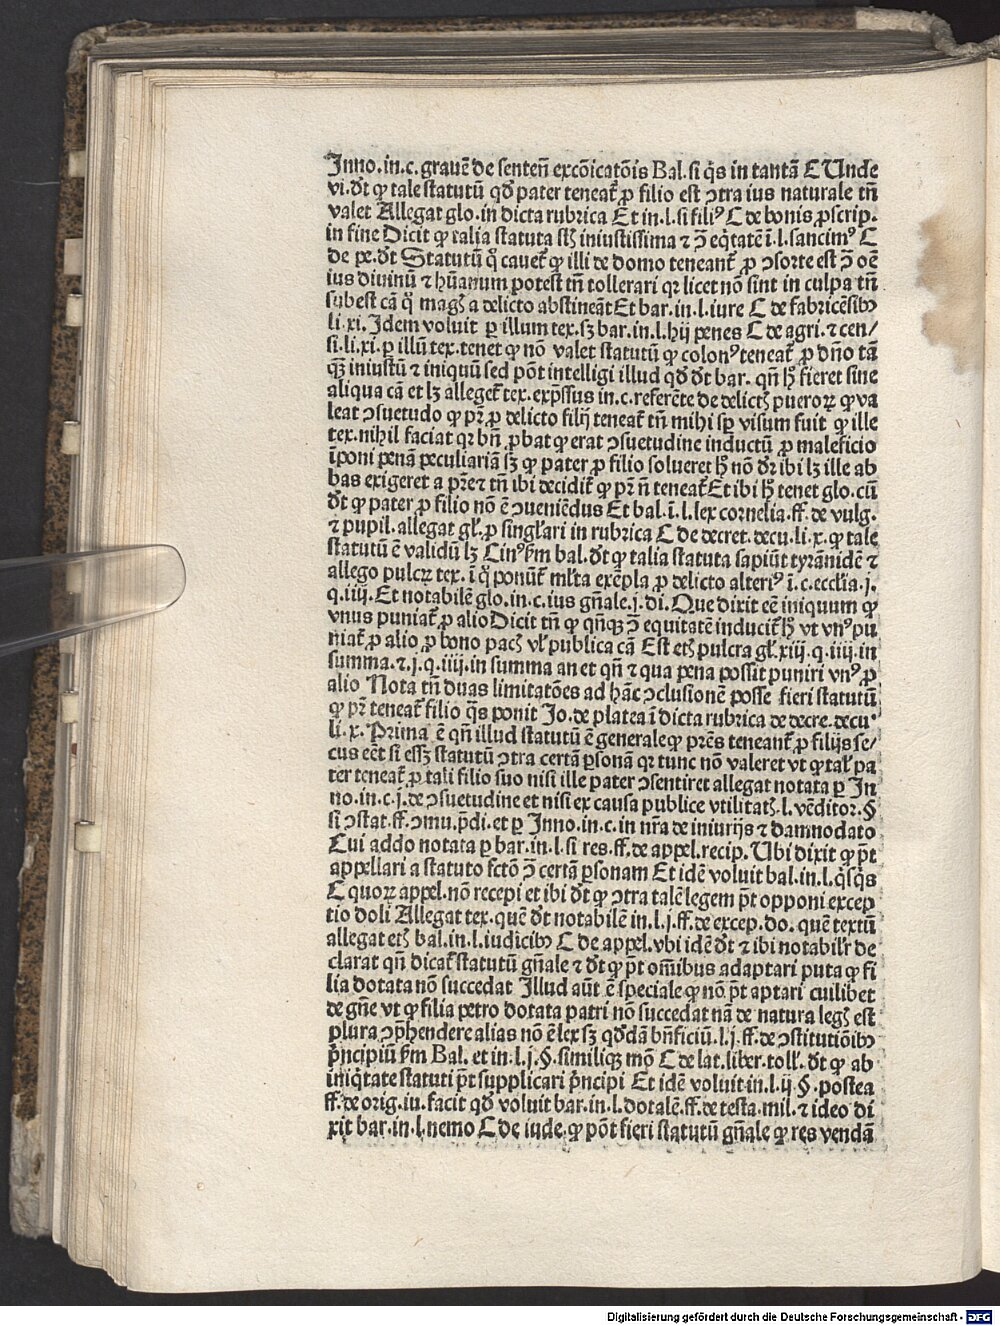 Inno.in.c.grauē de senteñ excōicatōis Bal.si q̄s in tantā C Unde
vi.d̄t ꝙ tale statutū qd̄ pater teneat̄ ꝓ filio est ꝯtra ius naturale tñ
valet Allegat glo.in dicta rubrica Et in.l.si fili⁹ C de bonis ꝓscrip.
in fine Dicit ꝙ talia statuta st̄ iniustissima ⁊ ꝯ̄ eq̄tatē ī.l.sancim⁹ C
de pe.d̄t Statutū q̄ cauet̄ ꝙ illi de domo teneant̄ ꝓ ꝯsorte est ꝯ̄ oē
ius diuinū ⁊ hūanum potest tñ tollerari qr licet nō sint in culpa tñ
subest cā q̄ magꝭ a delicto abstineāt Et bar.in.l.iure C de fabricēsibꝫ
li.xi.Idem voluit ꝑ illum tex.sꝫ bar.in.l.hij penes C de agri.⁊ cen/
si.li.xi.ꝑ illū tex.tenet ꝙ nō valet statutū ꝙ colon⁹ teneat̄ ꝓ dño tā
qꝫ iniustū ⁊ iniquū sed pōt intelligi illud qd̄ d̄t bar. qñ h̄ fieret sine
aliqua cā et lꝫ alleget̄ tex.exp̄ssus in.c.referēte de delictꝭ pueroꝝ ꝙ va
leat ꝯsuetudo ꝙ pr̄ ꝓ delicto filij teneat̄ tñ mihi sꝑ visum fuit ꝙ ille
tex.nihil faciat qr bñ ꝓbat ꝙ erat ꝯsuetudine inductū ꝓ maleficio
īponi penā peculiariā sꝫ ꝙ pater ꝓ filio solueret h̄ nō dr̄ ibi lꝫ ille ab
bas exigeret a pr̄e ⁊ tñ ibi decidit̄ ꝙ pr̄ ñ teneat̄ Et ibi h̄ tenet glo.cū
d̄t ꝙ pater ꝓ filio nō ē ꝯueniēdus Et bal.ī.l.lex cornelia.ff.de vulg.
⁊ pupil.allegat gł.ꝓ singl̄ari in rubrica C de decret.decu.li.x.ꝙ tale
statutū ē validū lꝫ Cin⁹ ẜm bal.d̄t ꝙ talia statuta sapiūt tyrānidē ⁊
allego pulcꝝ tex.ī q̄ ponūt̄ ml̄ta exēpla ꝓ delicto alteri⁹ ī.c.ecclīa.j.
q.iiij.Et notabilē glo.in.c.ius gñale.j.di.Que dixit eē iniquum ꝙ
vnus puniat̄ ꝓ alio Dicit tñ ꝙ qñqꝫ ꝯ̄ equitatē inducit̄ h̄ vt vn⁹ pu
niat̄ ꝓ alio ꝓ bono pacꝭ vl̄ publica cā Est etꝭ pulcra gł.xiij.q.iiij.in
summa.⁊.j.q.iiij.in summa an et qñ ⁊ qua pena possit puniri vn⁹ ꝓ
alio Nota tñ duas limitatōes ad hāc ꝯclusionē posse fieri statutū
ꝙ pr̄ teneat̄ filio q̄s ponit Jo.de platea ī dicta rubrica de decre.decu.
li.x.Prima ē qñ illud statutū ē generale ꝙ prēs teneant̄ ꝓ filijs se/
cus eēt si essꝫ statutū ꝯtra certā ꝑsonā qr tunc nō valeret vt ꝙ tał pa
ter teneat̄ ꝓ tali filio suo nisi ille pater ꝯsentiret allegat notata ꝑ In
no.in.c.j.de ꝯsuetudine et nisi ex causa publice vtilitatꝭ.l.vēditor.§
si ꝯstat.ff.ꝯmu.p̄di.et ꝑ Inno.in.c.in nr̄a de iniurijs ⁊ damno dato
Cui addo notata ꝑ bar.in.l.si res.ff.de appel.recip.Ubi dixit ꝙ p̄t
appellari a statuto fctō ꝯ̄ certā ꝑsonam Et idē voluit bal.in.l.q̄sq̄s
C quoꝝ appel.nō recepi et ibi d̄t ꝙ ꝯtra talē legem p̄t opponi excep
tio doli Allegat tex.quē d̄t notabilē in.l.j.ff.de excep.do.quē textū
allegat etꝭ bal.in.l.iudicibꝫ C de appel.vbi idē d̄t ⁊ ibi notabilr̄ de
clarat qñ dicat̄ statutū gñale ⁊ d̄t ꝙ p̄t om̄ibus adaptari puta ꝙ fi
lia dotata nō succedat Illud aūt ē speciale ꝙ nō p̄t aptari cuilibet
de gñe vt ꝙ filia petro dotata patri nō succedat nā de natura legꝭ est
plura ꝯp̄hendere alias nō ē lex sꝫ qd̄dā bñficiū.l.j.ff.de ꝯstitutiōibꝫ
p̄ncipiū ẜm Bal.et in.l.j.§.similiqꝫ mō C de lat.liber.toll.d̄t ꝙ ab
iniq̄tate statuti p̄t supplicari p̄ncipi Et idē voluit in.l.ij.§.postea
ff.de orig.iu.facit qd̄ voluit bar.in.l.dotalē.ff.de testa.mil.⁊ ideo di
xit bar.in.l.nemo C de iude.ꝙ pōt fieri statutū gñale ꝙ res vendā
Digitalisierung gefördert durch die Deutsche Forschungsgemeinschaft - DFG